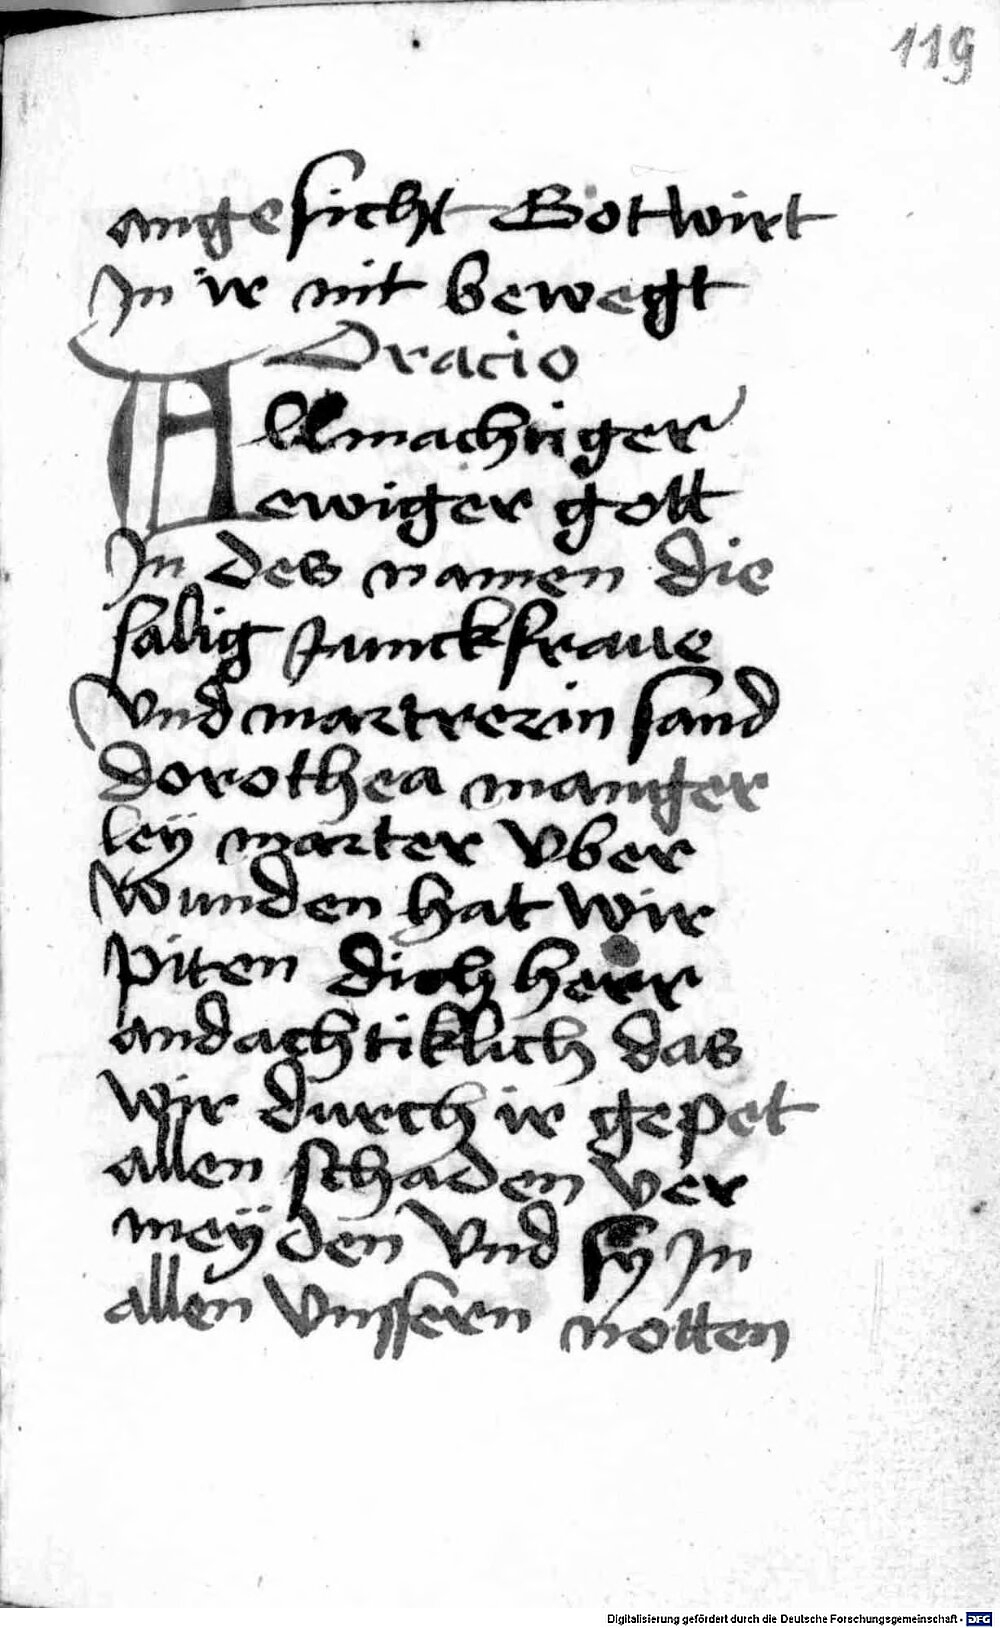 119
angesicht Got wirt
In ir nit bewegt
Oracio
Allmachtiger
ewiger gott
In des namen die
salig Junckfraue
vnd martrerin sand
dorothea maniger
leÿ marter vber
wunden hat wir
piten dich herr
andachtiklich das
wir durch ir gepet
allen schaden ver
meÿden vnd sy In
allen vnssern notten
Digitalisierung gefördert durch die Deutsche Forschungsgemeinschaft - DFG